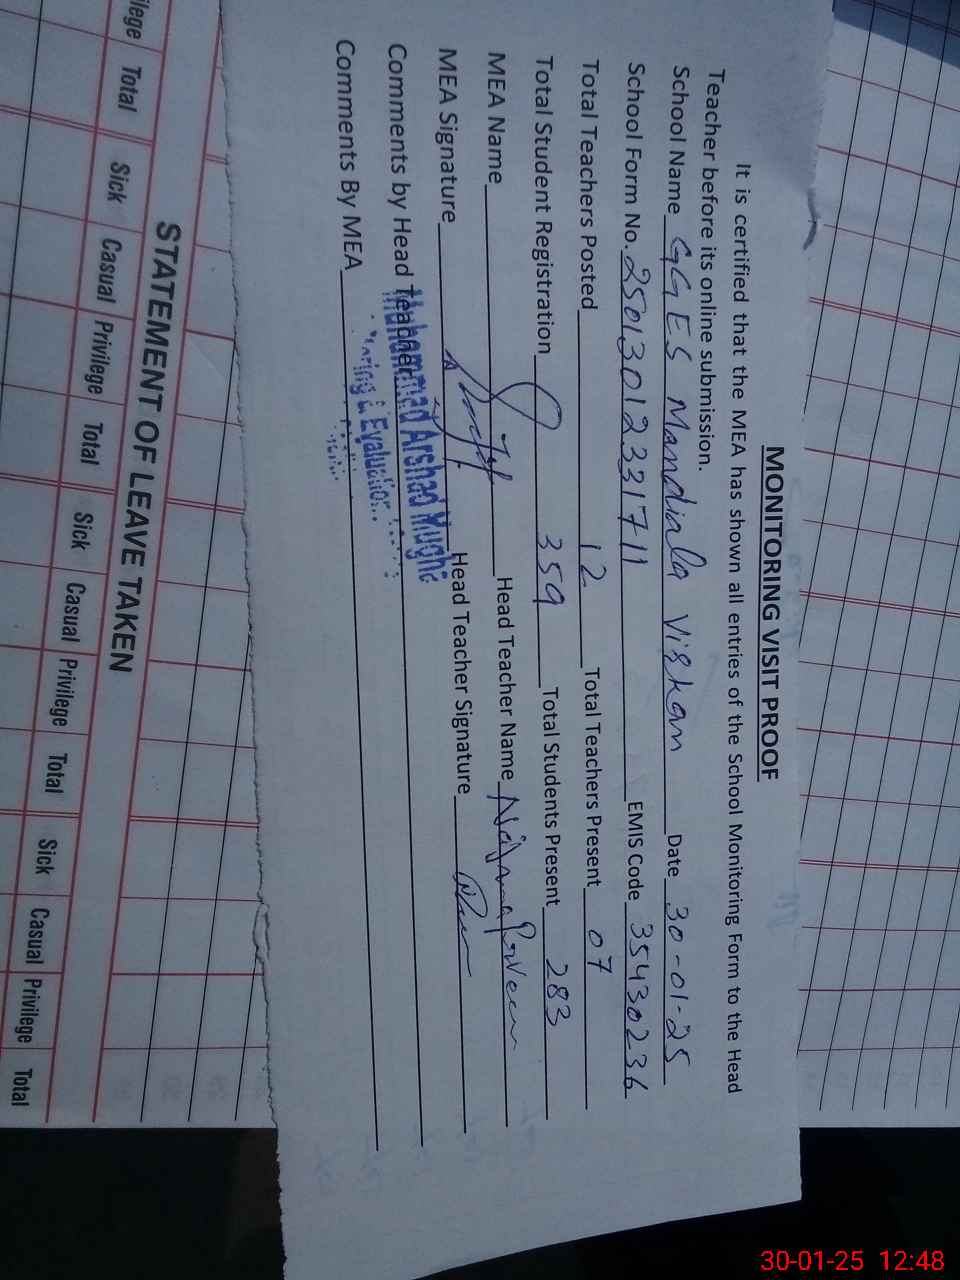 MONITORING VISIT PROOF
It is certified that the MEA has shown all entries of the School Monitoring Form to the Head
Teacher before its online submission.
School Name GGES Mandiala Virkan Date 30-01-25
School Form No. 25013012331711 EMIS Code 35430236
Total Teachers Posted 12 Total Teachers Present 07
Total Student Registration 359 Total Students Present 283
MEA Name Head Teacher Name Najma Perveen
MEA Signature Head Teacher Signature
Comments by Head Teacher
Muhammad Arshad Mughal
Comments By MEA
& Evaluation
STATEMENT OF LEAVE TAKEN
Total Sick Casual Privilege Total Sick Casual Privilege Total Sick Casual Privilege Total
30-01-25 12:48